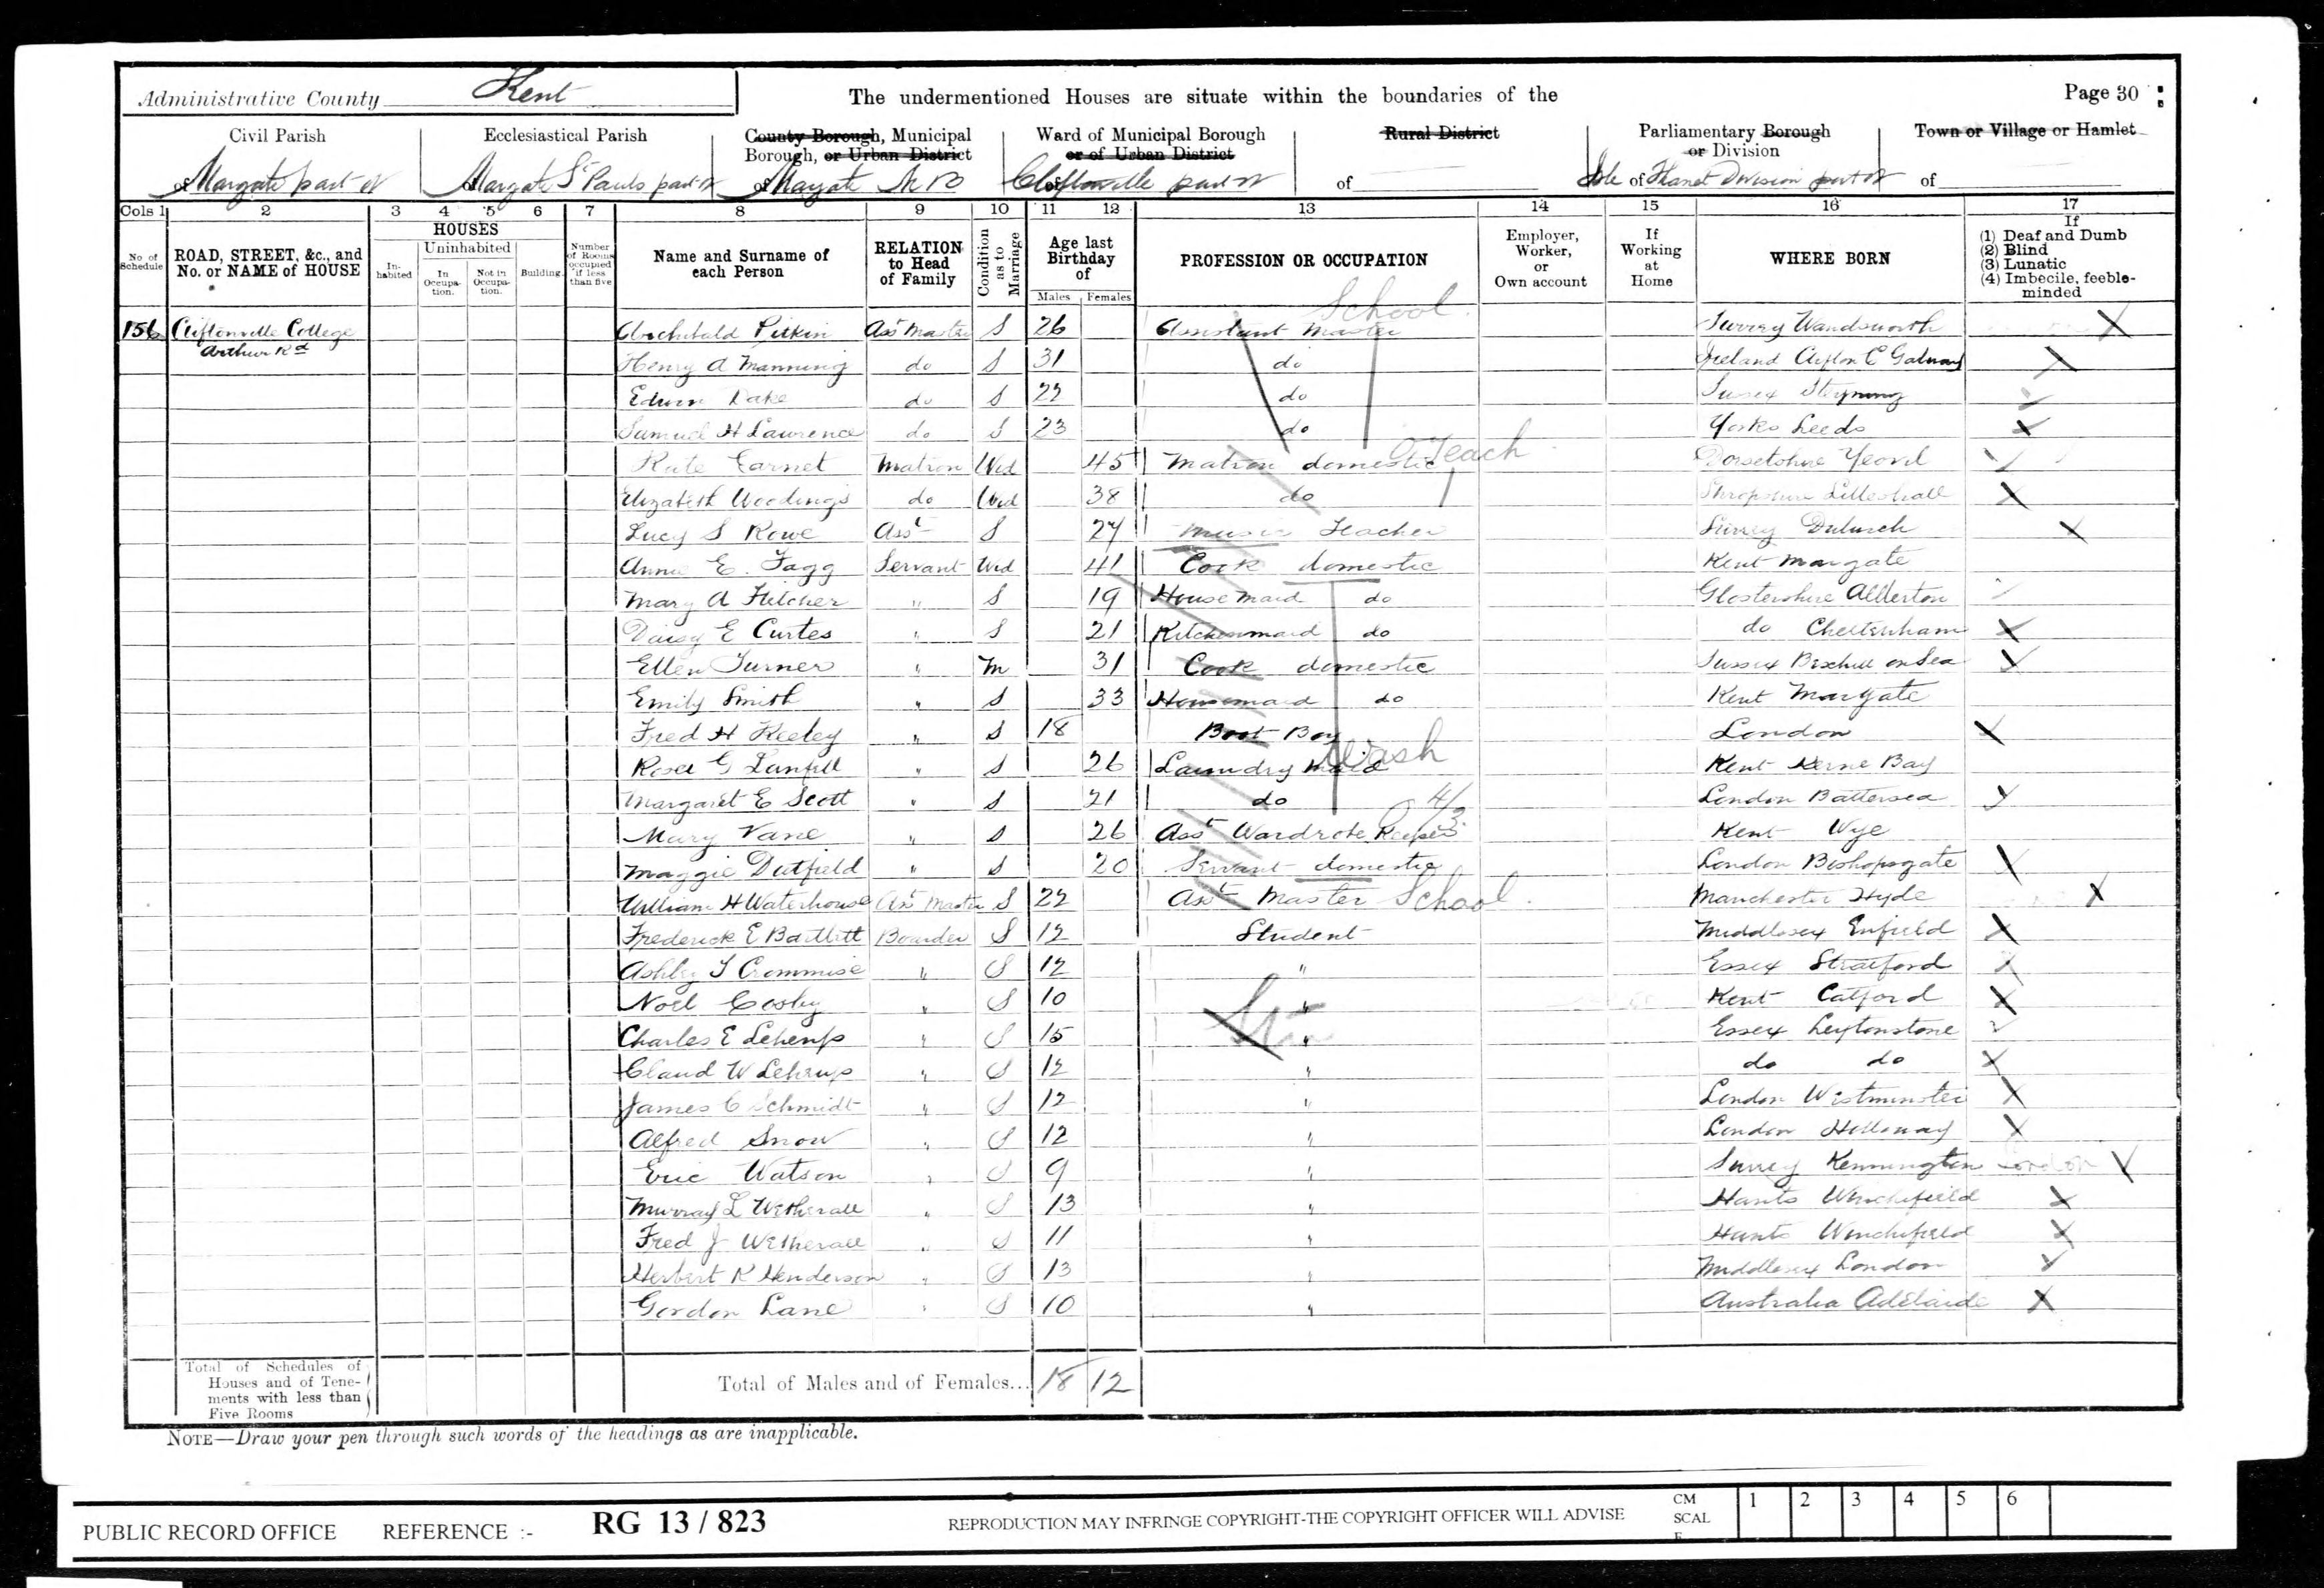 Administrative County Kent
The undermentioned Houses are situate within the boundaries of the
Page 30
Civil Parish
Ecclesiastical Parish
County Borough, Municipal Borough, or Urban District
Ward of Municipal Borough or of Urban District
Rural District
Parliamentary Borough or Division
Town or Village or Hamlet
of Margate part of
of Margate St Pauls part of
of Margate M B
of Cliftonville part of
of
Isle of Thanet Division part of
of
Cols 1 2 3 4 5 6 7 8 9 10 11 12 13 14 15 16 17
No of Schedule
ROAD, STREET, &c., and No. or NAME of HOUSE
HOUSES
In-habited
Uninhabited
In Occupa-tion.
Not in Occupa-tion.
Building.
Number of Rooms occupied if less than five
Name and Surname of each Person
RELATION to Head of Family
Condition as to Marriage
Age last Birthday of
Males Females
PROFESSION OR OCCUPATION
Employer, Worker, or Own account
If Working at Home
WHERE BORN
If (1) Deaf and Dumb (2) Blind (3) Lunatic (4) Imbecile, feeble-minded
School
156 Cliftonville College Archibald Pitkin Asst Master S 26 Assistant Master Surrey Wandsworth
Arthur Rd
Henry A Manning do S 31 do Ireland Clifton C Galway
Edwin Dake do S 22 do Sussex Steyning
Samuel H Lawrence do S 23 do Yorks Leeds
Kate Garnet Matron Wid 45 Matron domestic Teach Dorsetshire Yeovil
Elizabeth Woodings do Wid 38 do Shropshire Lilleshall
Lucy S Rowe Asst S 27 Music Teacher Surrey Dulwich
Annie E. Fagg Servant Wid 41 Cook domestic Kent Margate
Mary A Fletcher " S 19 Housemaid do Glostershire Allderton
Daisy E Curtes " S 21 Kitchenmaid do do Cheltenham
Ellen Turner " M 31 Cook domestic Sussex Bexhill on Sea
Emily Smith " S 33 Housemaid do Kent Margate
Fred H Keeley " S 18 Boot Boy London
Rosa G " S 26 Laundry Maid Wash Kent Herne Bay
Margaret E Scott " S 21 do London Battersea
Mary Vane " S 26 Asst Wardrobe Keeper Kent Wye
Maggie Dutfield " S 20 Servant domestic London Bishopsgate
William H Waterhouse Asst Master S 22 Asst Master School Manchester Hyde
Frederick E Bartlett Boarder S 12 Student Middlesex Enfield
Ashley T " S 12 " Essex Stratford
Noel Cosby " S 10 " Kent Catford
Charles E " S 15 " Essex Leytonstone
Claud W " S 12 " do do
James C Schmidt " S 12 " London Westminster
Alfred Snow " S 12 " London Holloway
Eric Watson " S 9 " Surrey Kennington London
Murray L Wetherall " S 13 " Hants Winchifield
Fred J Wetherall " S 11 " Hants Winchifield
Herbert K Henderson " S 13 " Middlesex London
Gordon Lane " S 10 " Australia Adelaide
Total of Schedules of Houses and of Tene-ments with less than Five Rooms
Total of Males and of Females... 18 12
NOTE—Draw your pen through such words of the headings as are inapplicable.
PUBLIC RECORD OFFICE REFERENCE :- RG 13 / 823 REPRODUCTION MAY INFRINGE COPYRIGHT-THE COPYRIGHT OFFICER WILL ADVISE CM SCALE 1 2 3 4 5 6